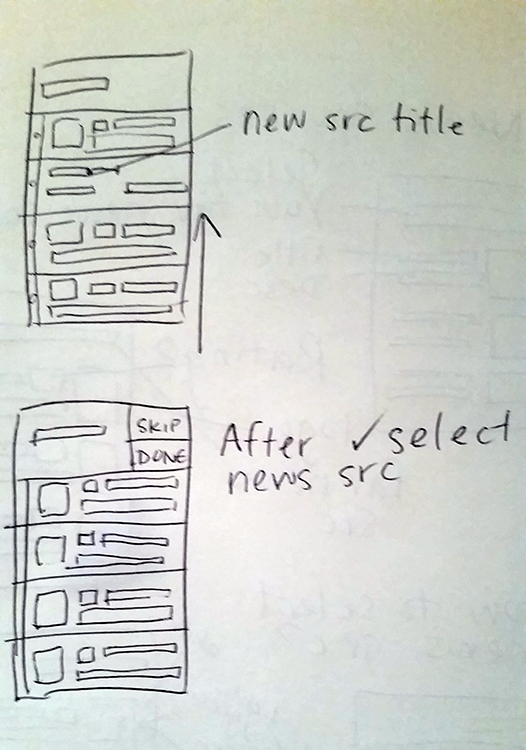 new src title
SKIP
DONE
After ✓select
news src